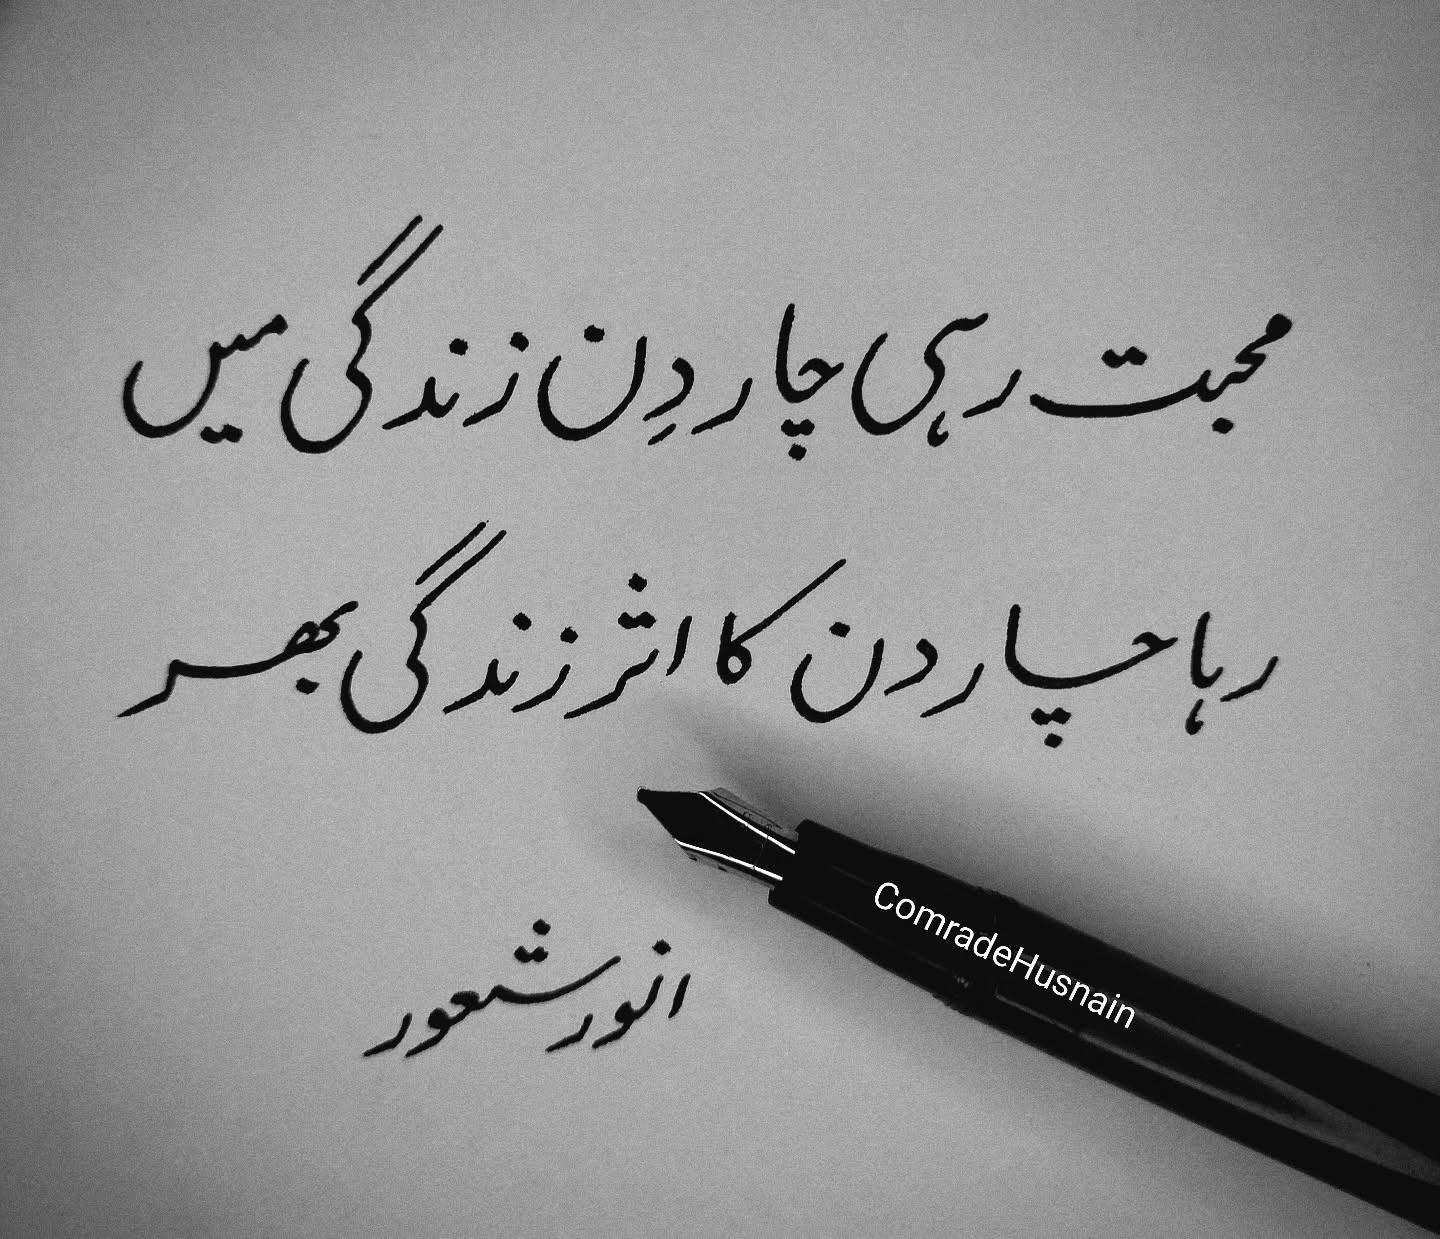 محبت رہی چار دِن زندگی میں
رہا چار دن کا اثر زندگی بھر
انور شعور
ComradeHusnain